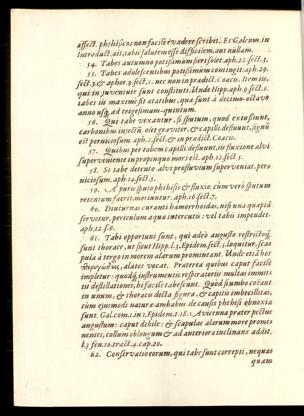 affect. phthisicos non facile evadere scribit. Et Galenus, in
introduct. ait, tabis salutem esse difficilem, aut nullam.
54. Tabes autumno potissimum fieri solet. aph. 22. sect. 3.
55. Tabes adolescentibus potissimum contingit. aph. 29.
sect. 3. & aphor. 9. sect. 5. nec non in prædict. Coacis. Item iis,
qui in juventute sunt constituti. Unde Hipp. aph. 9. sect. 5.
tabes iis maxime fit ætatibus, quæ sunt à decimo-octavo
anno usq; ad trigesimum-quintum.
56. Qui tabe vexantur, si sputum, quod extussiunt,
carbonibus injectū olet graviter, & capilli defluunt, signū
est perniciosum. aph. 2. sect. & in prædict. Coacis.
57. Quibus per tabem capilli defluunt, iis fluxione alvi
superveniente in propinquo mors est. aph. 12. sect. 5.
58. Si tabe detento alvi profluvium superveniat, per-
niciosum. aph. 14. sect. 5.
59. A puris sputo phthisis & fluxio: cùm verò sputum
retentum fuerit, moriuntur. aph. 16. sect. 7.
60. Diuturnas curanti hæmorrhoidas, nisi una quapiā
servitur, periculum aqua intercutis: vel tabis impendet.
aph. 12. s. 6.
61. Tabi opportuni sunt, qui adeò angusto restrictoq;
sunt thorace, ut sicut Hipp. l. 3. Epidem. sect. 3. loquitur, scas
pula à tergo in morem alarum promineant. Unde etiā hos
alatos vocat. Præterea quibus caput facile
impletur: quodq; instrumentis respiratoriis multas immits
tit destillationes, hi facile tabescunt. Quòd si umbo coëant
in unum, & thoracis dicta figura, & capitis imbecillitas,
cùm ejusmodi natura ambabus de causis phthisi obnoxia
sunt. Gal. com. 1. in 1. Epidem. t. 18. Avicenna præter pectus
angustum: caput debile: & scapulas alarum more promis
nentes, collum oblongum & ad anteriora inclinans addit.
l. 3. fen. 10. tract. 4. cap. 20.
62. Conservatio eorum, qui tabe sunt correpti, nequas
quam